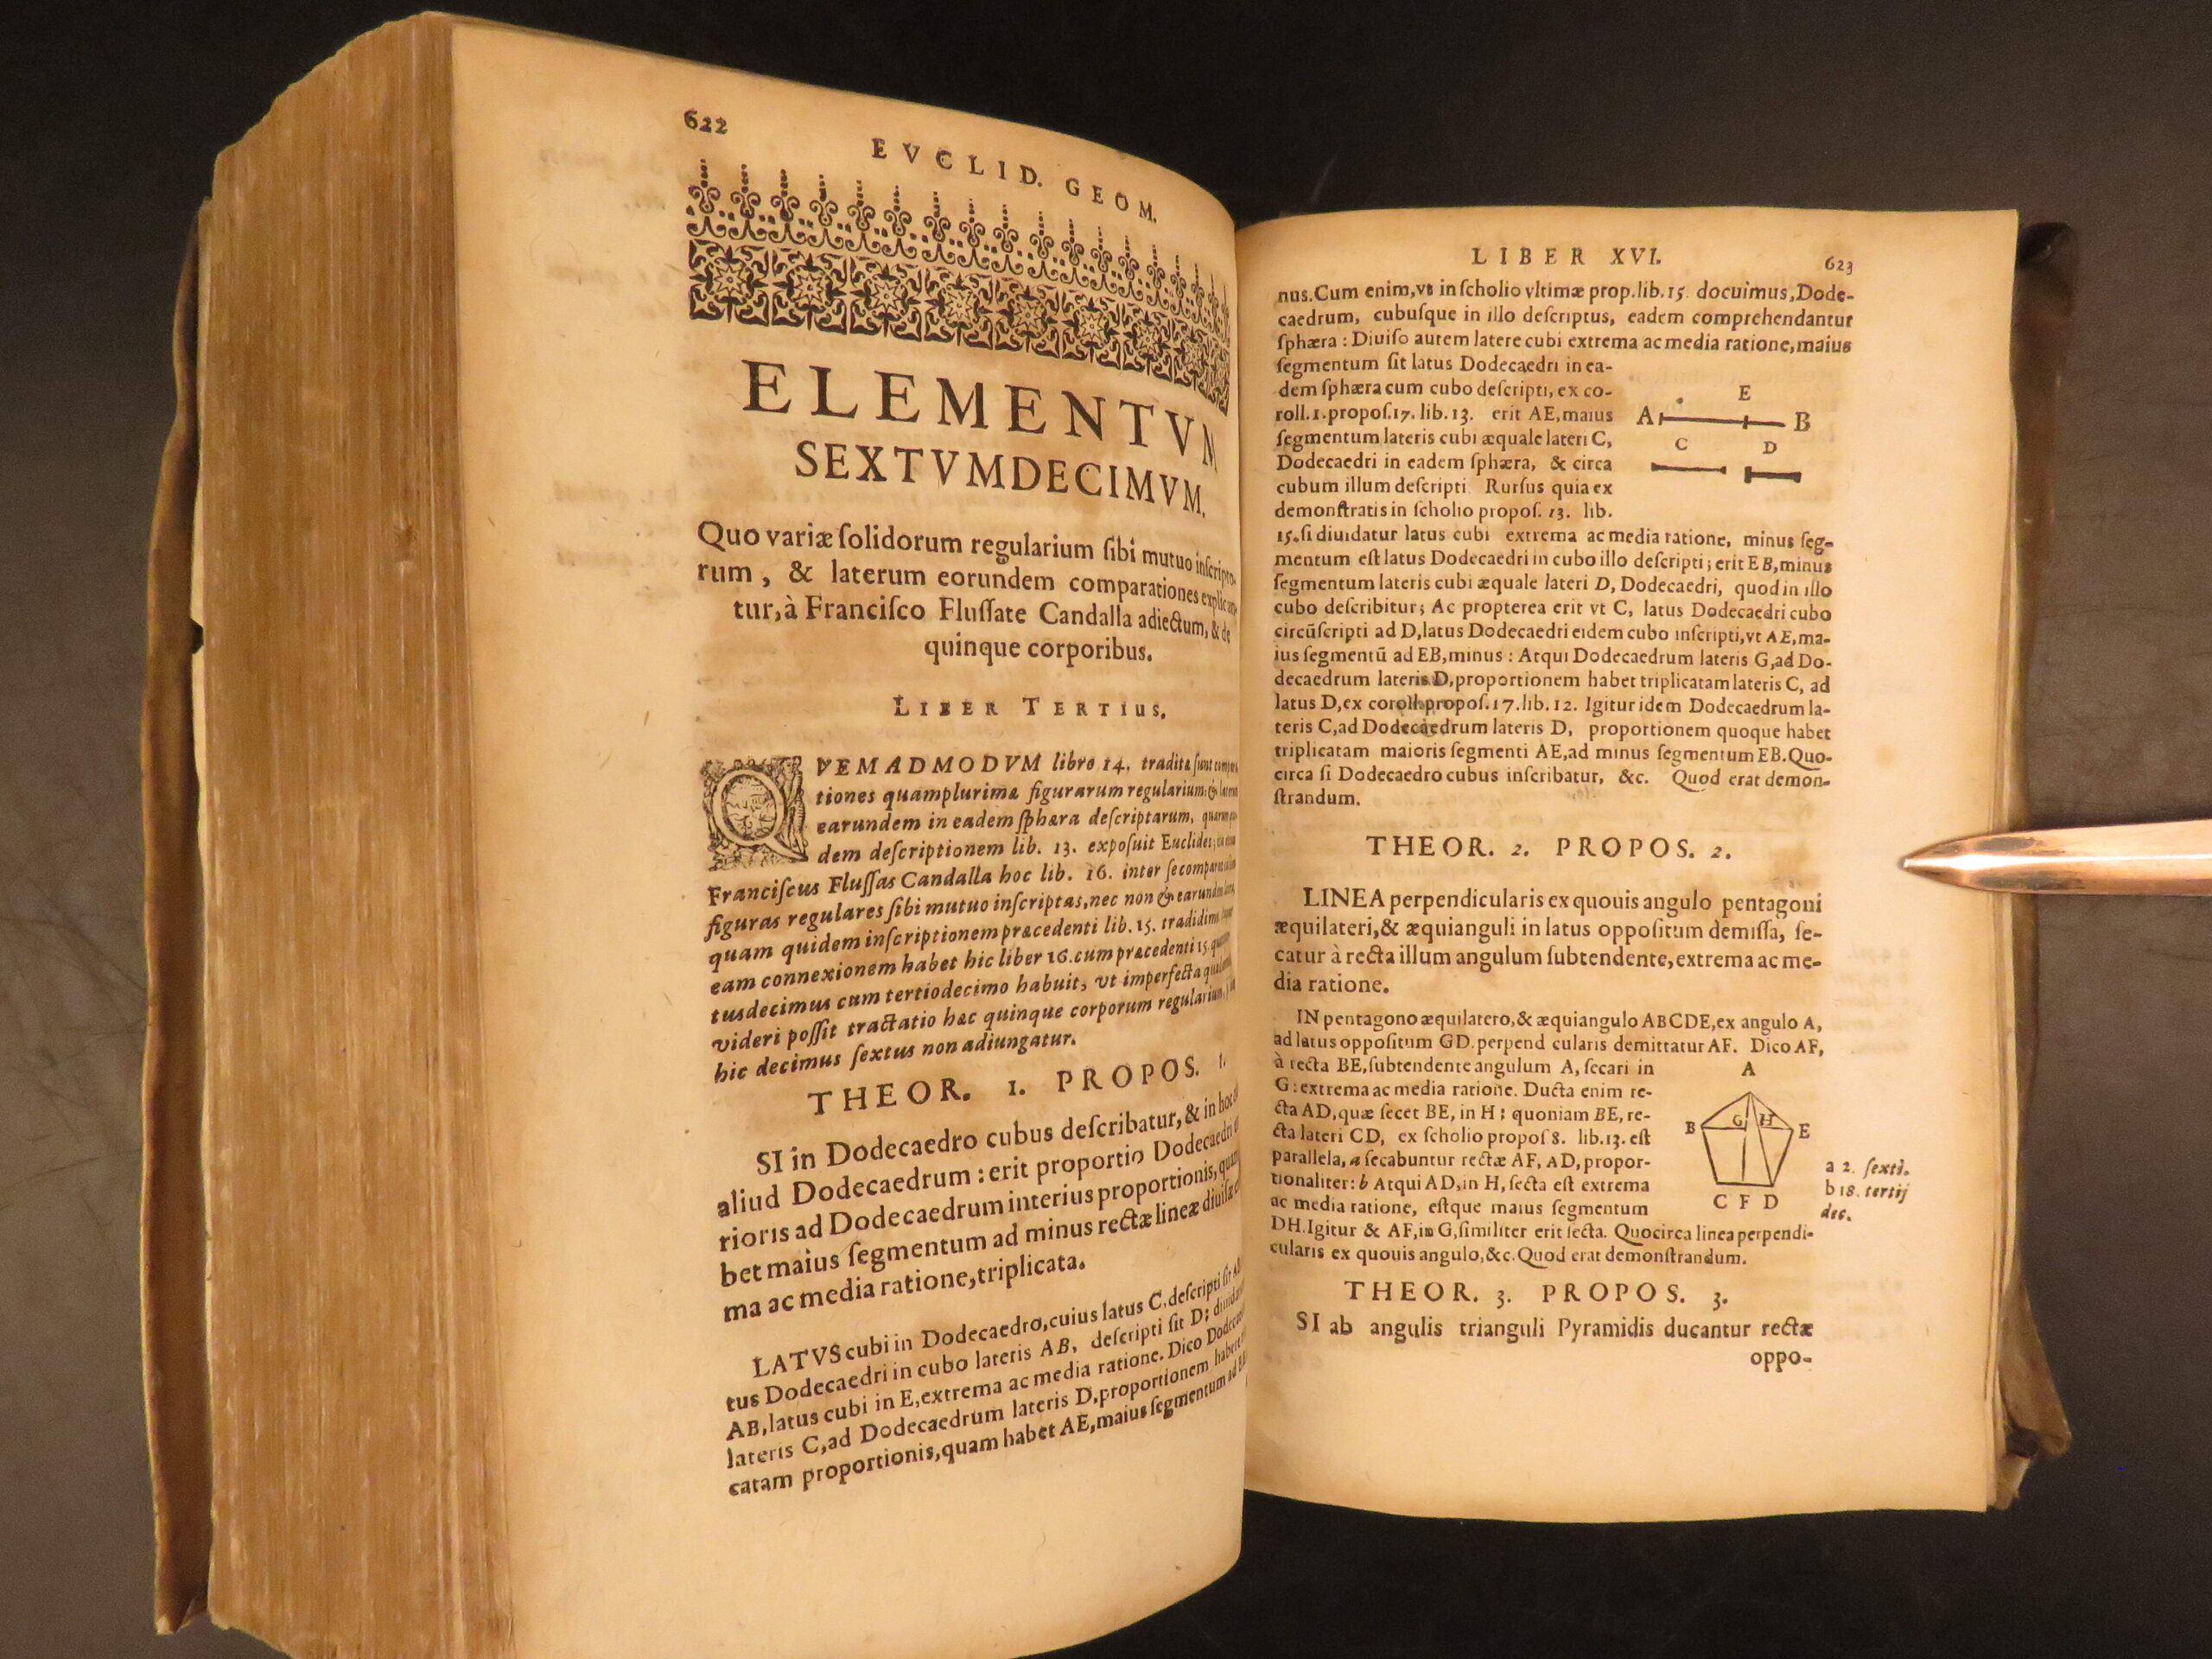 622
EVCLID. GEOM.
ELEMENTVM
SEXTVMDECIMVM.
Quo variæ ſolidorum regularium ſibi mutuo inſcripto-
rum, & laterum eorundem comparationes explican-
tur, à Franciſco Fluſſate Candalla adiectum, & de
quinque corporibus.
LIBER TERTIUS.
QVEMADMODVM libro 14. tradita ſunt
tiones quamplurimæ figurarum regularium, &
earundem in eadem ſphæra deſcriptarum,
dem deſcriptionem lib. 13. expoſuit Euclides;
Franciſcus Fluſſas Candalla hoc lib. 16. inter ſe
figuras regulares ſibi mutuo inſcriptas, nec non &
quam quidem inſcriptionem præcedenti lib. 15.
eam connexionem habet hic liber 16. cum præcedenti 15.
tusdecimus cum tertiodecimo habuit, vt imperfecta
videri poſſit tractatio hæc quinque corporum regularium,
hic decimus ſextus non adiungatur.
THEOR. 1. PROPOS. 1.
SI in Dodecaedro cubus deſcribatur, & in hoc
aliud Dodecaedrum : erit proportio Dodecaedri
rioris ad Dodecaedrum interius proportionis,
bet maius ſegmentum ad minus rectæ lineæ diuiſæ
ma ac media ratione, triplicata.
LATVS cubi in Dodecaedro, cuius latus C, deſcripti ſit
tus Dodecaedri in cubo lateris AB, deſcripti ſit D;
AB, latus cubi in E, extrema ac media ratione. Dico
lateris C, ad Dodecaedrum lateris D, proportionem
catam proportionis, quam habet AE, maius ſegmentum ad
LIBER XVI.
623
nus. Cum enim, vt in ſcholio vltimæ prop. lib. 15. docuimus, Dode-
caedrum, cubuſque in illo deſcriptus, eadem comprehendantur
ſphæra : Diuiſo autem latere cubi extrema ac media ratione, maius
ſegmentum ſit latus Dodecaedri in ea-
dem ſphæra cum cubo deſcripti, ex co-
roll. 1. propoſ. 17. lib. 13. erit AE, maius
ſegmentum lateris cubi æquale lateri C,
Dodecaedri in eadem ſphæra, & circa
cubum illum deſcripti. Rurſus quia ex
demonſtratis in ſcholio propoſ. 13. lib.
A E B
C D
15. ſi diuidatur latus cubi extrema ac media ratione, minus ſeg-
mentum eſt latus Dodecaedri in cubo illo deſcripti ; erit EB, minus
ſegmentum lateris cubi æquale lateri D, Dodecaedri, quod in illo
cubo deſcribitur; Ac propterea erit vt C, latus Dodecaedri cubo
circūſcripti ad D, latus Dodecaedri eidem cubo inſcripti, vt AE, ma-
ius ſegmentū ad EB, minus : Atqui Dodecaedrum lateris G, ad Do-
decaedrum lateris D, proportionem habet triplicatam lateris C, ad
latus D, ex coroll. propoſ. 17. lib. 12. Igitur idem Dodecaedrum la-
teris C, ad Dodecaedrum lateris D, proportionem quoque habet
triplicatam maioris ſegmenti AE, ad minus ſegmentum EB. Quo-
circa ſi Dodecaedro cubus inſcribatur, &c. Quod erat demon-
ſtrandum.
THEOR. 2. PROPOS. 2.
LINEA perpendicularis ex quouis angulo pentagoni
æquilateri, & æquianguli in latus oppoſitum demiſſa, ſe-
catur à recta illum angulum ſubtendente, extrema ac me-
dia ratione.
IN pentagono æquilatero, & æquiangulo ABCDE, ex angulo A,
ad latus oppoſitum GD. perpend cularis demittatur AF. Dico AF,
à recta BE, ſubtendente angulum A, ſecari in
G : extrema ac media ratione. Ducta enim re-
cta AD, quæ ſecet BE, in H : quoniam BE, re-
cta lateri CD, ex ſcholio propoſ 8. lib. 13. eſt
parallela, a ſecabuntur rectæ AF, AD, propor-
tionaliter: b Atqui AD, in H, ſecta eſt extrema
ac media ratione, eſtque maius ſegmentum
DH. Igitur & AF, in G, ſimiliter erit ſecta. Quocirca linea perpendi-
cularis ex quouis angulo, &c. Quod erat demonſtrandum.
A
B G H E
C F D
a 2. ſexti.
b 18. tertij
dec.
THEOR. 3. PROPOS. 3.
SI ab angulis trianguli Pyramidis ducantur rectæ
oppo-